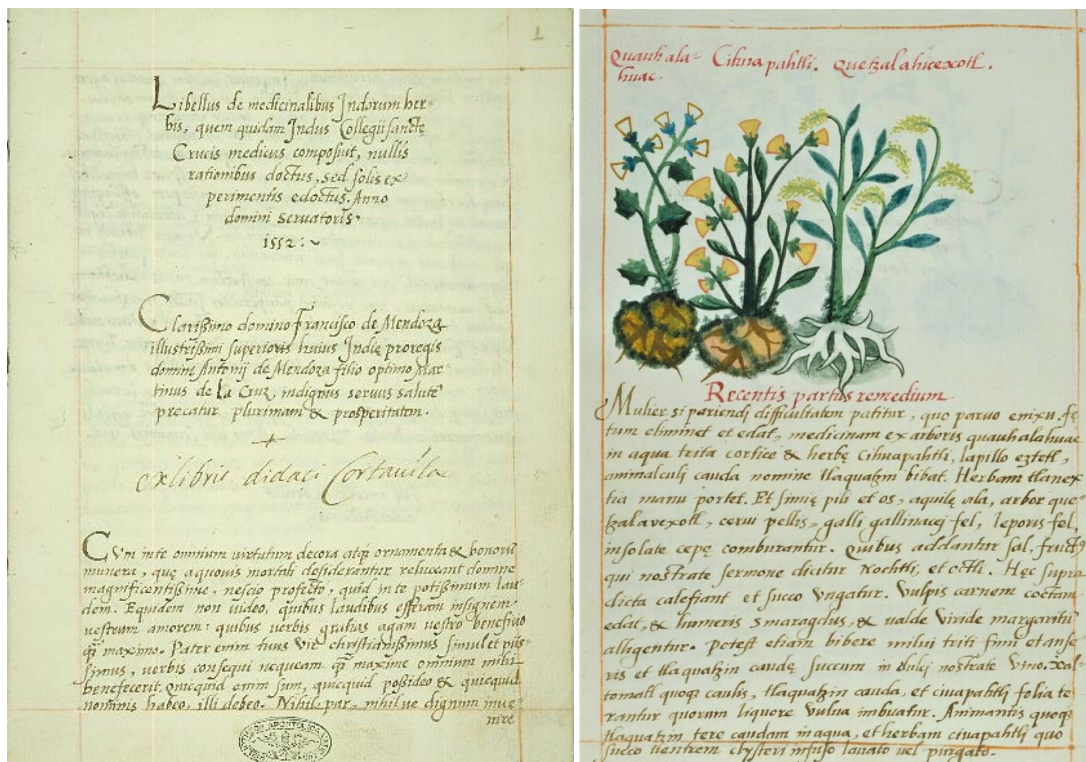 1
Libellus de medicinalibus Indorum her-
bis, quem quidam Indus Collegii sanctę
Crucis medicus composuit, nullis
rationibus doctus, sed solis ex-
perimentis edoctus. Anno
domini servatoris
1552:~
Clarißimo domino Francisco de Mendoza
illustrißimi superioris huius Indię proregis
domini Antonij de Mendoza filio optimo Mar-
tinus de La Cruz, indignus servus salutē
precatur plurimam & prosperitatem.
ex libris didaci Cortavila
CVm in te omnium virtutum decora atq ornamenta & bonorū
munera, quę a quovis mortali desiderantur reluceant domine
magnificentißime, nescio profecto, quid in te potißimum lau-
dem. Equidem non video, quibus laudibus efferam insignem
vestrum amorem: quibus verbis gratias agam vestro beneficio
q̄ maximo. Patri enim tuus vir christianißimus simul et piis-
simus, verbis consequi nequeam q̄ maxime omnium mihi
benefecerit, quicquid enim sum, quicquid poßideo & quicquid
nominis habeo, illi debeo. Nihil par, nihil ve dignum inve-
nire
Quauhala-   Cihua pahtli.   Quetzalahuexotl.
huac.
Recentis partus remedium.
Mulier si pariendi difficultatem patitur, quo parvo enixu fę
tum eliminet et edat, medicinam ex arboris quauhalahuac
in aqua trita cortice & herbę Cihuapahtli, lapillo eztetl,
animalculi cauda nomine tlaquatzin bibat. Herbam tlanex
tia manu portet. Et simię pili et os, aquilę ala, arbor que
tzalavexotl, cervi pellis, galli gallinacej fel, leporis fel,
insolate cepę comburantur. Quibus addantur sal, fructꝰ
qui nostrate sermone dicitur Nochtli, et octli. Hęc supra
dicta calefiant et succo Vngatur. Vulpis carnem coctam
edat, & humeris smaragdus, & valde Viride margaritū
alligentur. Potest etiam bibere milui triti fimi et anse
ris et tlaquatzin caudę succum in dulci nostrate Vino. Xal-
tomatl quoq caulis, tlaquatzin cauda, et civapahtli folia te
rantur quorum liquore Vulva imbuatur. Animantis quoq
tlaquatzin tere caudam in aqua, et herbam civapahtli quo
succo ventrem clysteri infuso lavato vel purgato.